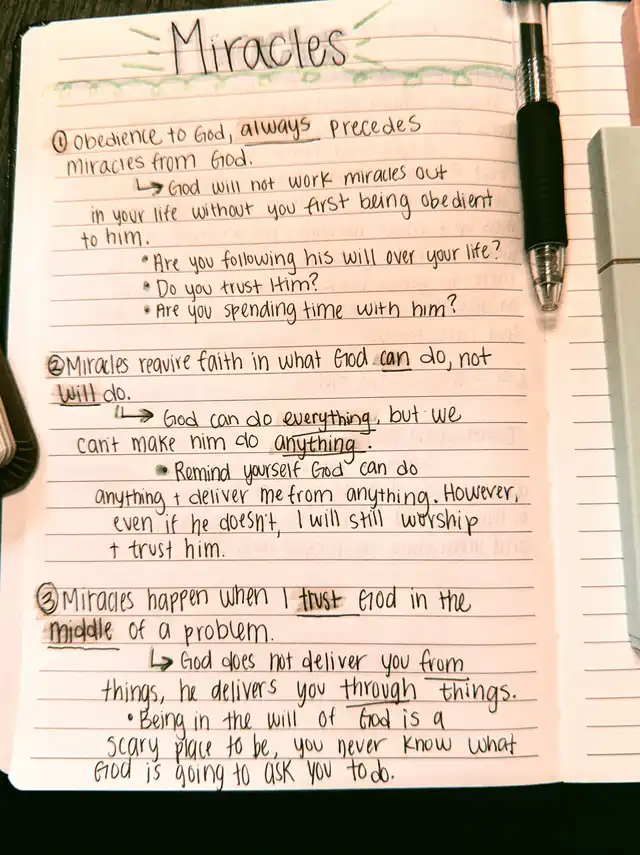 Miracles
① Obedience to God, always precedes
miracles from God.
↳ God will not work miracles out
in your life without you first being obedient
to him.
• Are you following his will over your life?
• Do you trust Him?
• Are you spending time with him?
② Miracles require faith in what God can do, not
will do.
↳ God can do everything, but we
can't make him do anything.
• Remind yourself God can do
anything + deliver me from anything. However,
even if he doesn't, I will still worship
+ trust him.
③ Miracles happen when I trust God in the
middle of a problem.
↳ God does not deliver you from
things, he delivers you through things.
• Being in the will of God is a
scary place to be, you never know what
God is going to ask you to do.